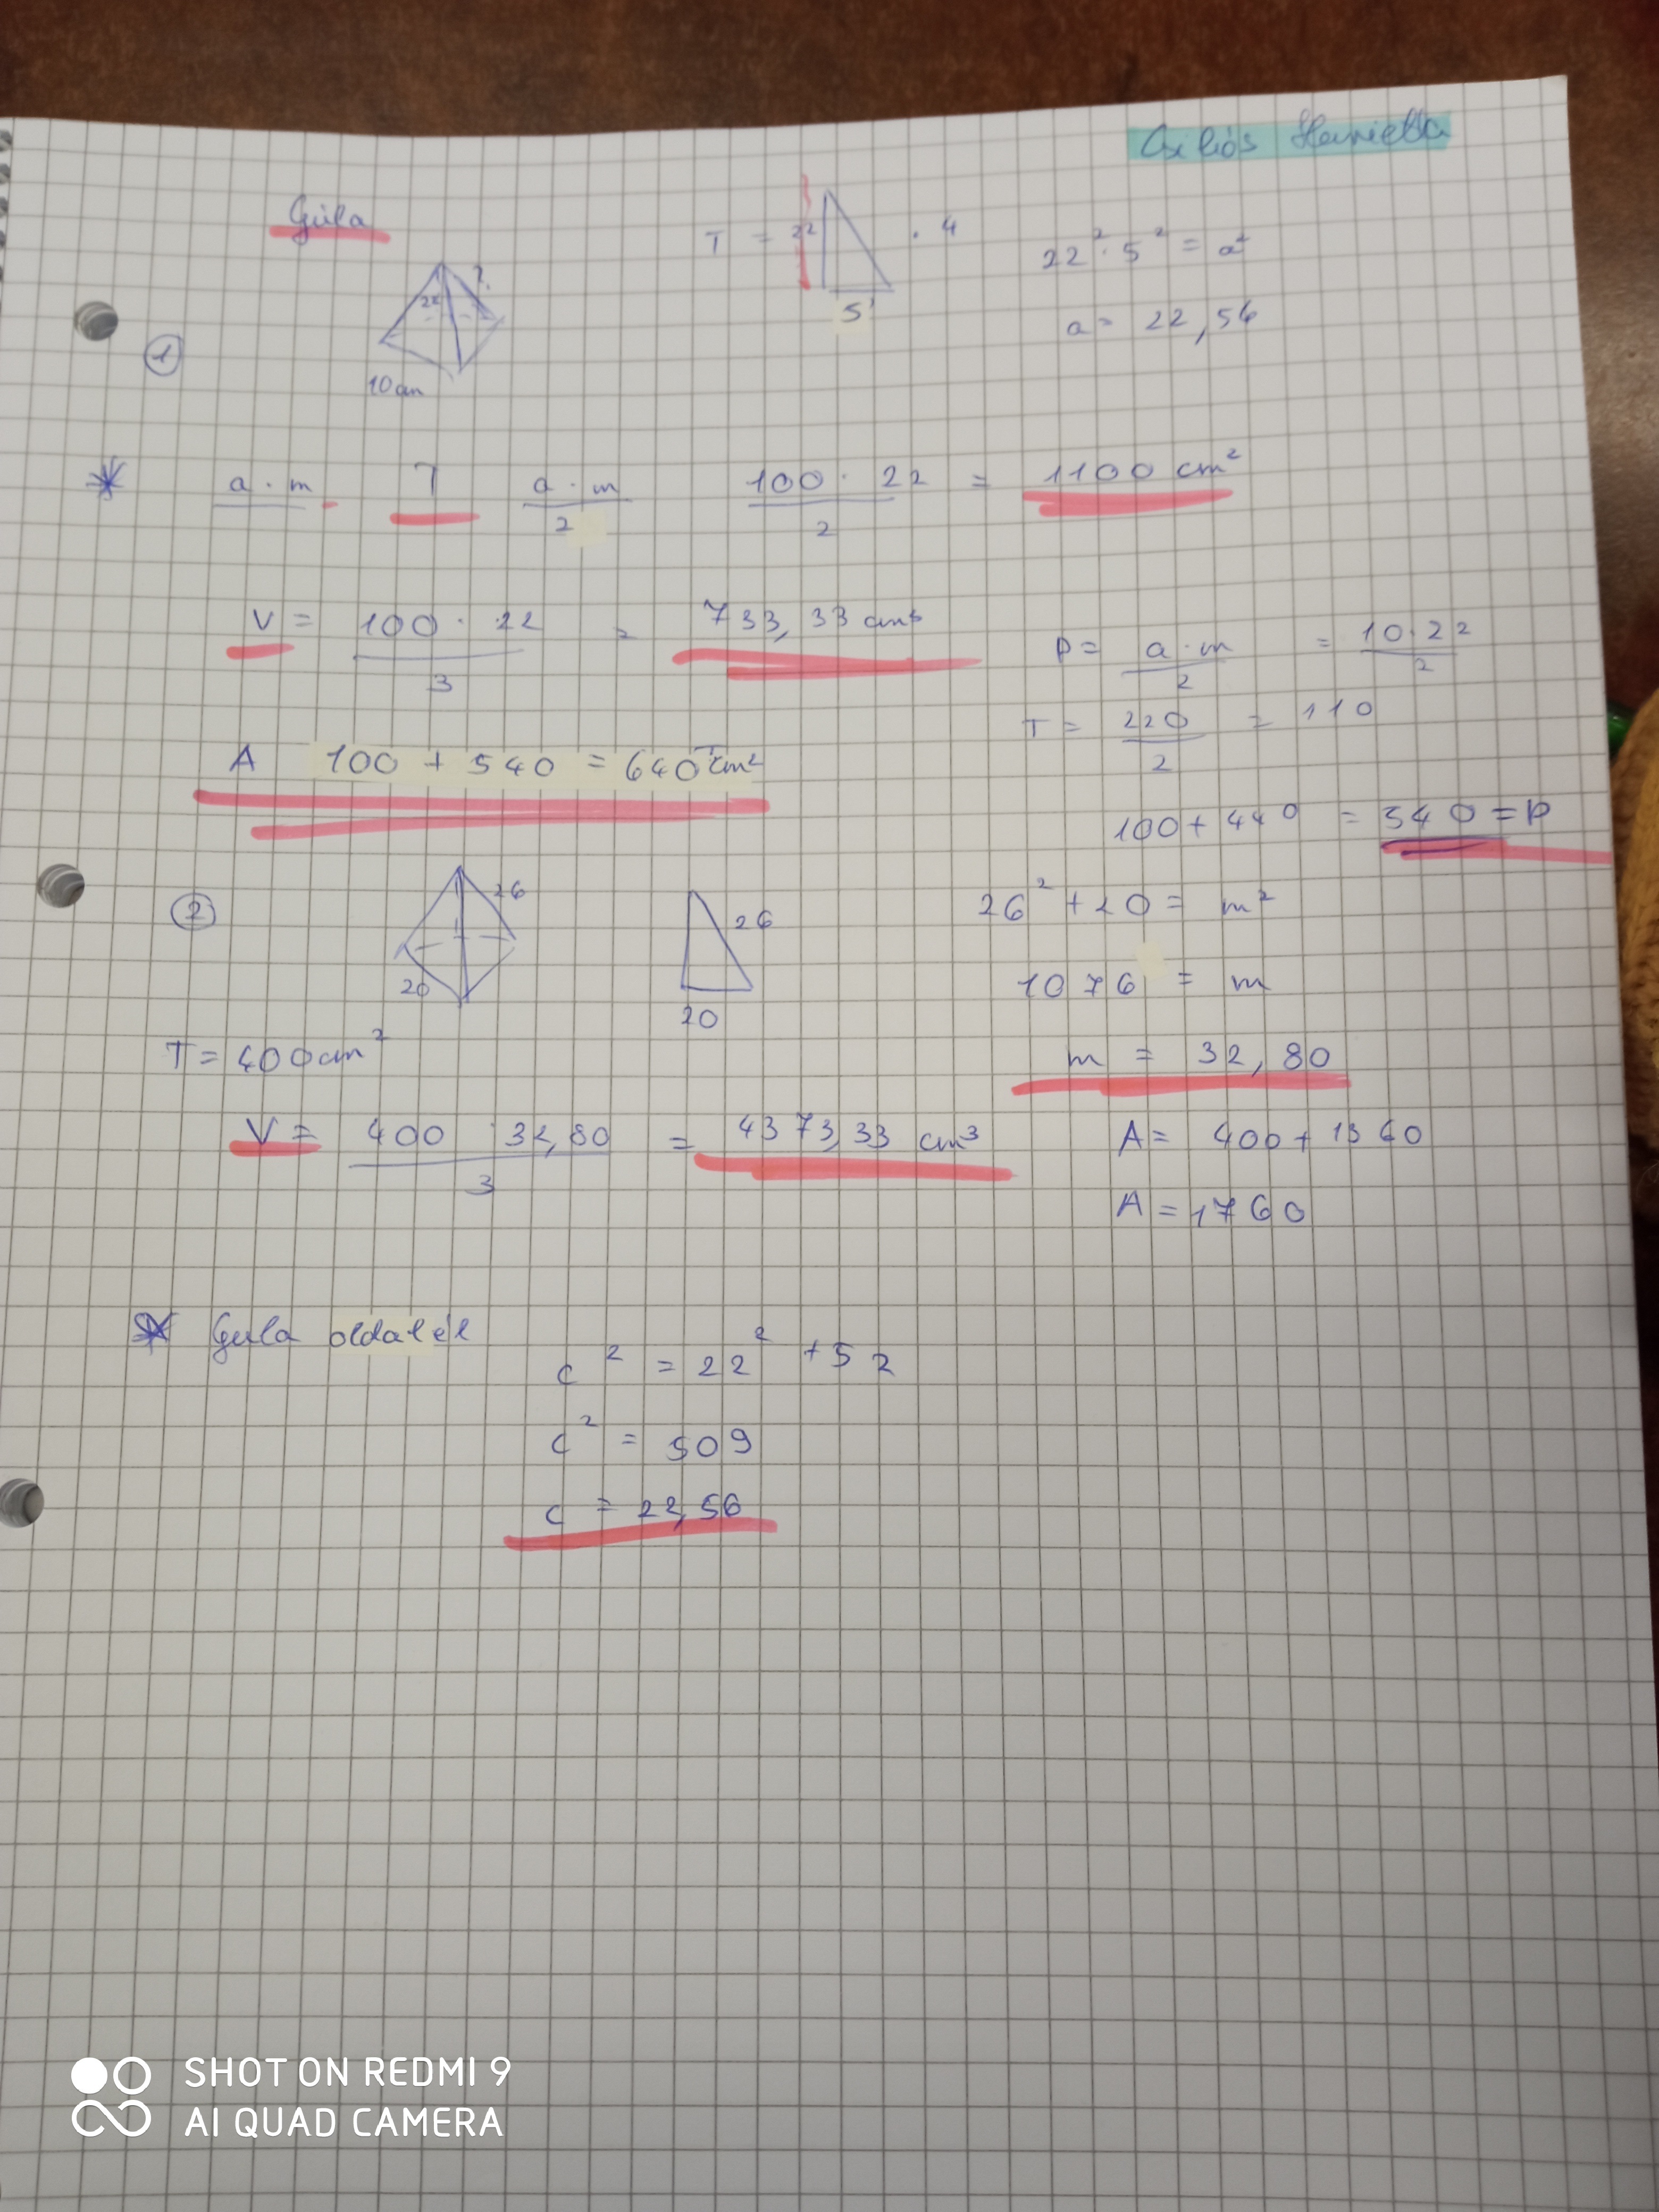 Henrietta
Gúla
T = 22 5 · 4
22² · 5² = a²
a = 22,56
1
22 ?
10 cm
a · m T a · m / 2 100 · 22 / 2 = 1100 cm²
V = 100 · 22 / 3 = 733,33 cm³
P = a · m / 2 = 10 · 22 / 2
T = 220 / 2 = 110
A 100 + 540 = 640 cm²
100 + 440 = 540 = P
2
26
20
26
20
26² + 20 = m²
1076 = m
T = 400 cm²
m = 32,80
V = 400 · 32,80 / 3 = 4373,33 cm³
A = 400 + 1360
A = 1760
Gula oldalél
c² = 22² + 52
c² = 509
c = 22,56
SHOT ON REDMI 9
AI QUAD CAMERA